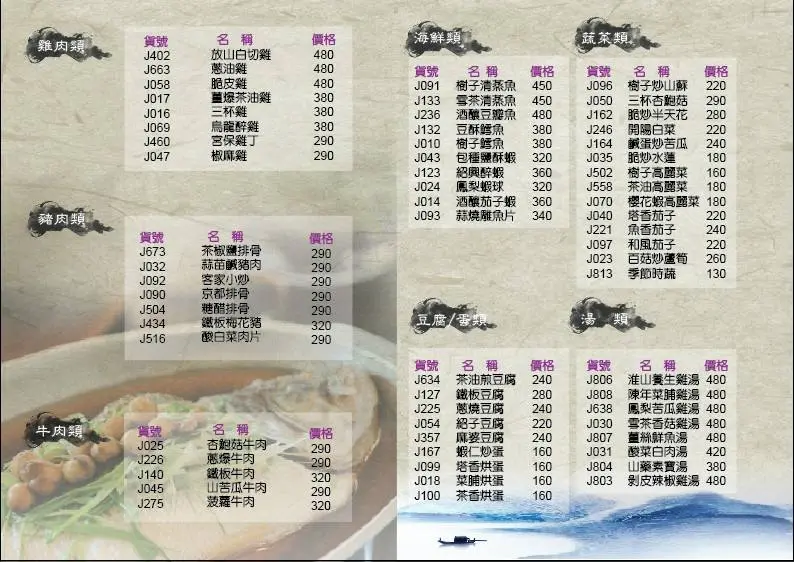 雞肉類
貨號 名 稱 價格
J402 放山白切雞 480
J663 蔥油雞 480
J058 脆皮雞 480
J017 薑爆茶油雞 380
J016 三杯雞 380
J069 烏龍醉雞 380
J460 宮保雞丁 290
J047 椒麻雞 290
豬肉類
貨號 名 稱 價格
J673 茶椒鹽排骨 290
J032 蒜苗鹹豬肉 290
J092 客家小炒 290
J090 京都排骨 290
J504 糖醋排骨 290
J434 鐵板梅花豬 320
J516 酸白菜肉片 290
牛肉類
貨號 名 稱 價格
J025 杏鮑菇牛肉 290
J226 蔥爆牛肉 290
J140 鐵板牛肉 320
J045 山苦瓜牛肉 290
J275 菠蘿牛肉 320
海鮮類
貨號 名 稱 價格
J091 樹子清蒸魚 450
J133 雪茶清蒸魚 450
J236 酒釀豆瓣魚 480
J132 豆酥鱈魚 380
J010 樹子鱈魚 380
J043 包種鹽酥蝦 320
J123 紹興醉蝦 360
J024 鳳梨蝦球 320
J014 酒釀茄子蝦 360
J093 蒜燒雕魚片 340
蔬菜類
貨號 名 稱 價格
J096 樹子炒山蘇 220
J050 三杯杏鮑菇 290
J162 脆炒半天花 280
J246 開陽白菜 220
J164 鹹蛋炒苦瓜 240
J035 脆炒水蓮 180
J502 樹子高麗菜 160
J558 茶油高麗菜 180
J070 櫻花蝦高麗菜 180
J040 塔香茄子 220
J221 魚香茄子 240
J097 和風茄子 220
J023 百菇炒蘆筍 260
J813 季節時蔬 130
豆腐/蛋類
貨號 名 稱 價格
J634 茶油煎豆腐 240
J127 鐵板豆腐 280
J225 蔥燒豆腐 240
J054 紹子豆腐 220
J357 麻婆豆腐 240
J167 蝦仁炒蛋 160
J099 塔香烘蛋 160
J018 菜脯烘蛋 160
J100 茶香烘蛋 160
湯 類
貨號 名 稱 價格
J806 淮山養生雞湯 480
J808 陳年菜脯雞湯 480
J638 鳳梨苦瓜雞湯 480
J030 雪茶香菇雞湯 480
J807 薑絲鮮魚湯 480
J031 酸菜白肉湯 420
J804 山藥素寶湯 380
J803 剝皮辣椒雞湯 480